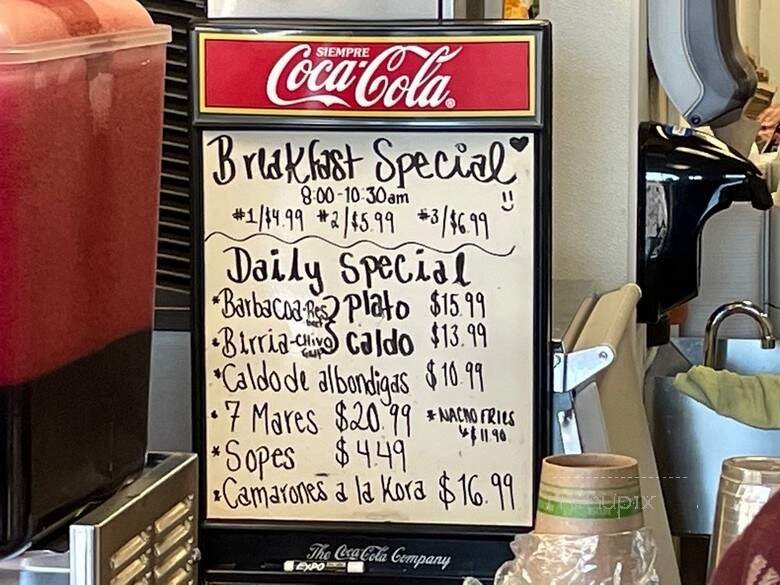 SIEMPRE
Coca-Cola
Breakfast Special
8:00-10:30am
#1/$4.99 #2/$5.99 #3/$6.99
Daily Special
*Barbacoa-Res beef Plato $15.99
*Birria-Chivo caldo $13.99
*Caldo de albondigas $10.99
*7 Mares $20.99 *NACHO FRIES
$11.90
*Sopes $4.49
*Camarones a la Kora $16.99
The Coca-Cola Company
EXPO